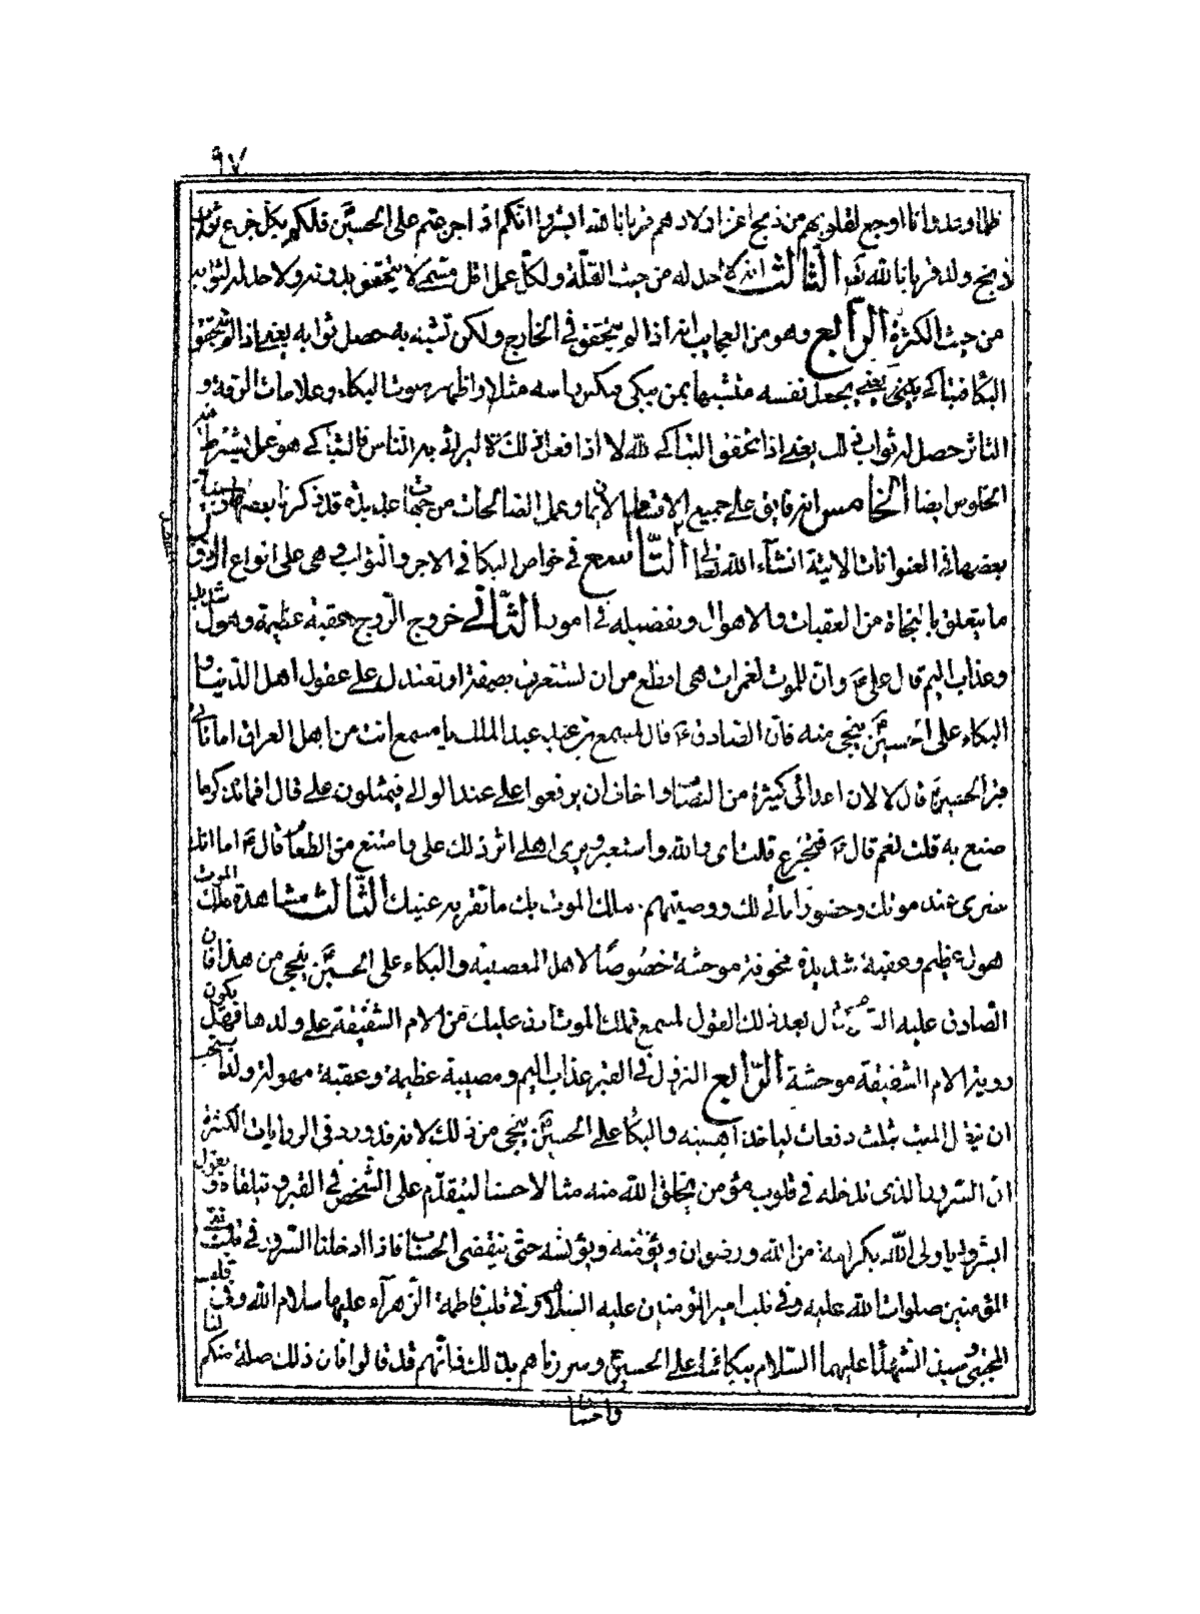 ٩٧
ظما وعدوانا اوجع لقلوبهم من ذبح اعز اولادهم قربانا لله ابشروا انكم اذا جزعتم على الحسين فلكم بكل جزع ثواب
ذبح ولد قربانا لله تعالى الثالث انه لا حد له من حيث القلة ولكل عمل اقل مسمى لا يتحقق بدونه ولا حد لثوابه
من حيث الكثرة الرابع وهو من العجايب انه اذا لم يتحقق في الخارج ولكن تشبه به حصل ثوابه يعنى اذا لم يتحقق
البكا فتباكى يعنى يجعل نفسه متشبها بمن يبكى وينكس راسه مثلا واظهر صوت البكاء وعلامات الرقة و
التاثر حصل له ثواب ذلك يعنى اذا تحقق التباكى لله لا اذا فعل ذلك لا ليرائى به الناس فالتباكى هو عمل يشترط فيه
الخلوص ايضا الخامس انه فايق على جميع اقسام الايمان وعمل الصالحات من جهات عديدة قد ذكرنا بعضها وسنبين
بعضها في العنوانات الاتية انشاء الله تعالى التاسع في خواص البكا في الاجر والثواب وهى على انواع الاول
ما يتعلق بالنجاة من العقبات والاهوال وتفضيله في امور الثانى خروج الروح عقبة عظيمة وهول شديد
وعذاب اليم قال على ع وان للموت لغمرات هى افظع من ان تستغرق بصفة او تعتدل على عقول اهل الدنيا و
البكاء على الحسين ينجى منه فان الصادق ع قال لمسمع بن عبد الملك يا مسمع انت من اهل العراق اما تاتى
قبر الحسين ع قال لا لان اعدائى كثيرة من النصاب واخاف ان يرفعوا على عند الوالى فيمثلون على قال افما تذكر ما
صنع به قلت نعم قال ع فتجزع قلت اى والله واستعبر ويرى اهلى اثر ذلك على وامتنع من الطعام قال ع اما انك
سترى عند موتك وحضور ابائى لك ووصيتهم ملك الموت بك ما تقر به عينك الثالث مشاهدة ملك الموت
هول عظيم وعقبة شديدة مخوفة موحشة خصوصا لاهل المعصية والبكاء على الحسين ينجى من هذا فان
الصادق عليه السلام قال بعد ذلك القول لمسمع فملك الموت ارق عليك من الام الشفيقة على ولدها فهل يكون
روية الام الشفيقة موحشة الرابع النزول في القبر عذاب اليم ومصيبة عظيمة وعقبة مهولة ولذا يستحب
ان ينزل الميت بثلث دفعات لياخذ اهبته والبكاء على الحسين ينجى من ذلك لانه قد ورد في الروايات الكثيرة
ان السرور الذى تدخله في قلوب مؤمن يخلق الله منه مثالا حسنا ليتقدم على الشخص في القبر ويتلقاه ويقول
ابشر يا ولى الله بكرامة من الله ورضوان ويؤمنه ويؤنسه حتى ينقضى الحساب فاذا ادخلنا السرور في قلب سيد
المؤمنين صلوات الله عليه وفى قلب امير المؤمنين عليه السلام وفى قلب فاطمة الزهراء عليها سلام الله وفى قلب
المجتبى وسيد الشهداء عليهما السلام ببكائنا على الحسين ع وسررناهم بذلك فانهم قد قالوا فان ذلك صلة منكم لنا
واحسانا